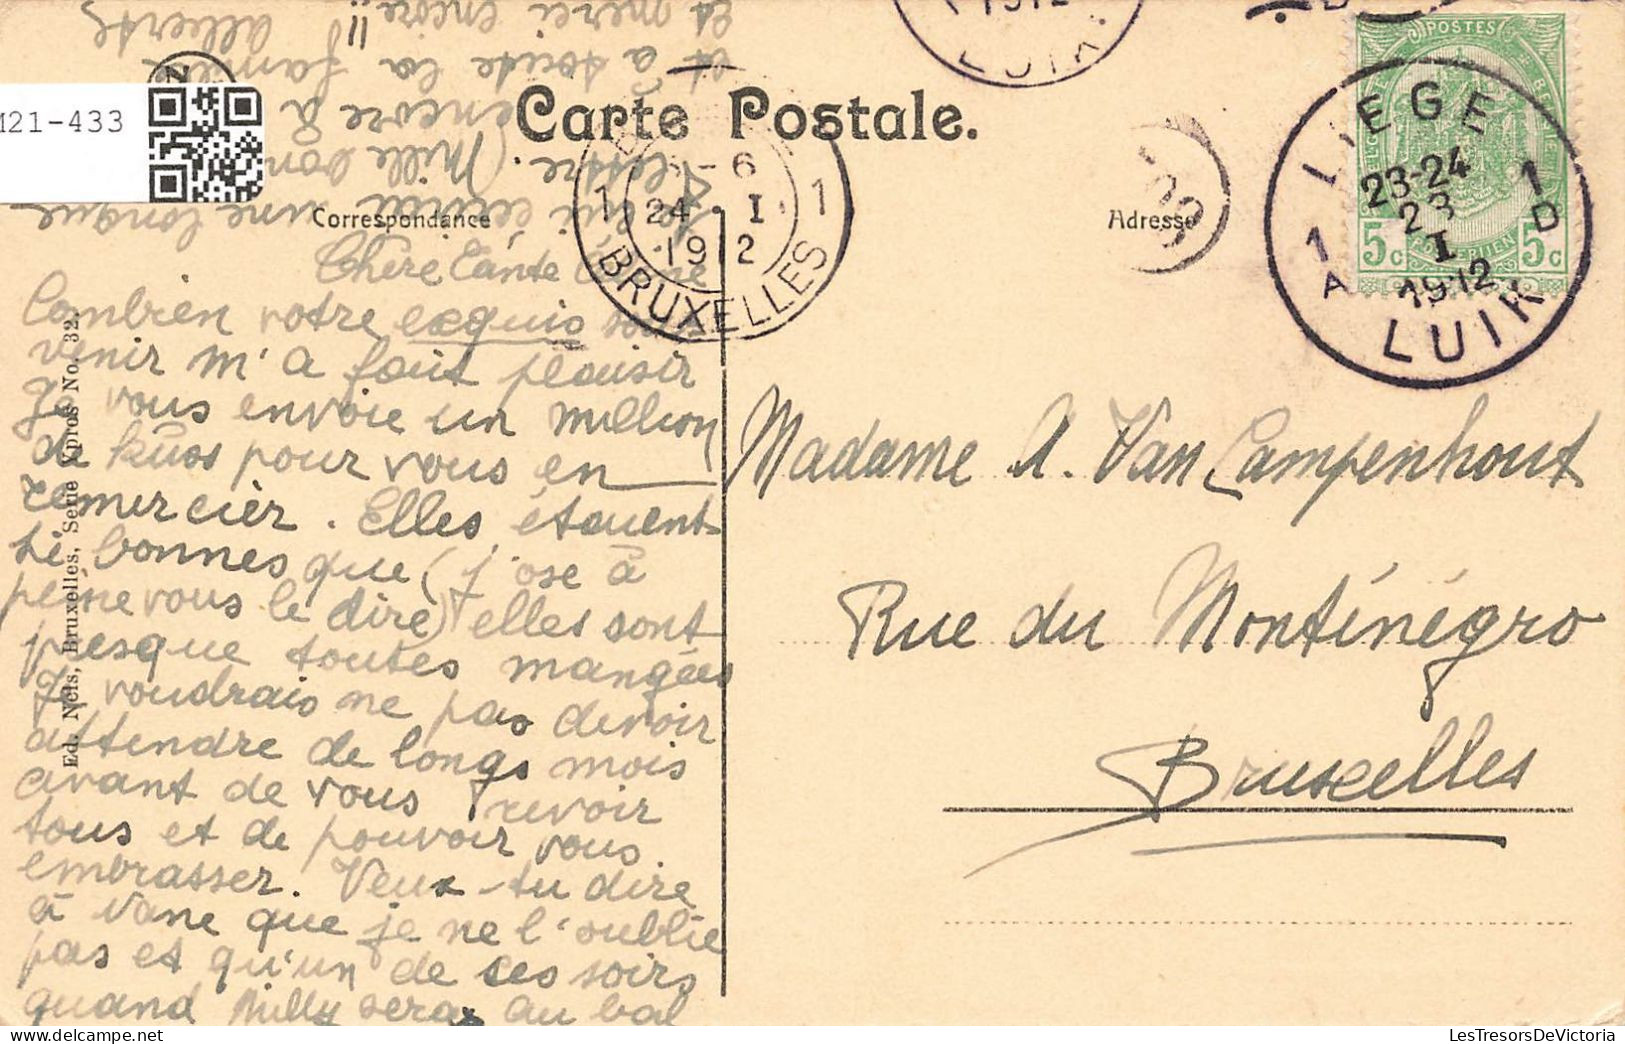 M21-433
Carte Postale.
Correspondance
Adresse
Ed. Nels, Bruxelles, Serie Ypres No. 32.
POSTES
5c 5c
LIEGE
1 1
23-24
23
I
1912
A D
LUIK
1912
LUIK
6
1 24 I 1
1912
BRUXELLES
Chère Tante
Combien votre exquis sou-
venir m'a fait plaisir
Je vous envoie un million
de kuss pour vous en
remercier. Elles étaient
si bonnes que (j'ose à
peine vous le dire) elles sont
presque toutes mangées
Je voudrais ne pas devoir
attendre de longs mois
avant de vous revoir
tous et de pouvoir vous
embrasser. Veux-tu dire
à Vane que je ne l'oublie
pas et qu'un de ces soirs
quand Milly sera au bal
je lui écrirai une longue
lettre. Mille bon
encore à
et à toute la famille
et merci encore!!
Alberte
Madame A. Van Campenhout
Rue du Monténégro
Bruxelles
LesTresorsDeVictoria